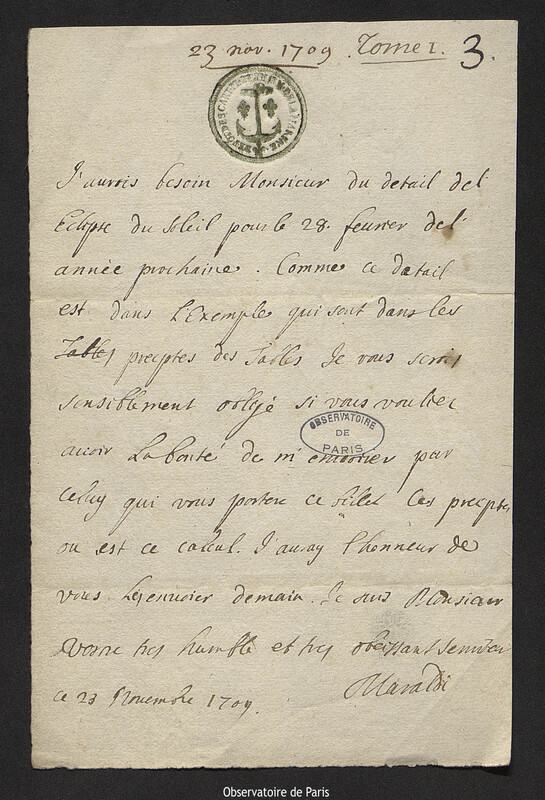 23 nov. 1709. Tome 1. 3.
J'aurois besoin Monsieur du detail del'
Eclipse du Soleil pour le 28. feurier del'
année prochaine. Comme ce detail
est dans l'Exemple qui sont dans les
Tables preceptes des Tables Je vous serois
sensiblement obligé si vous vouliez
auoir la bonté de m'enuoier par
celuy qui vous portera ce billet les preceptes
ou est ce calcul. J'auray l'honneur de
vous les renuoier demain. Je suis Monsieur
Votre tres humble et tres obeissant seruiteur
Maraldi
ce 23 Nouembre 1709.
OBSERVATOIRE
DE
PARIS
Observatoire de Paris